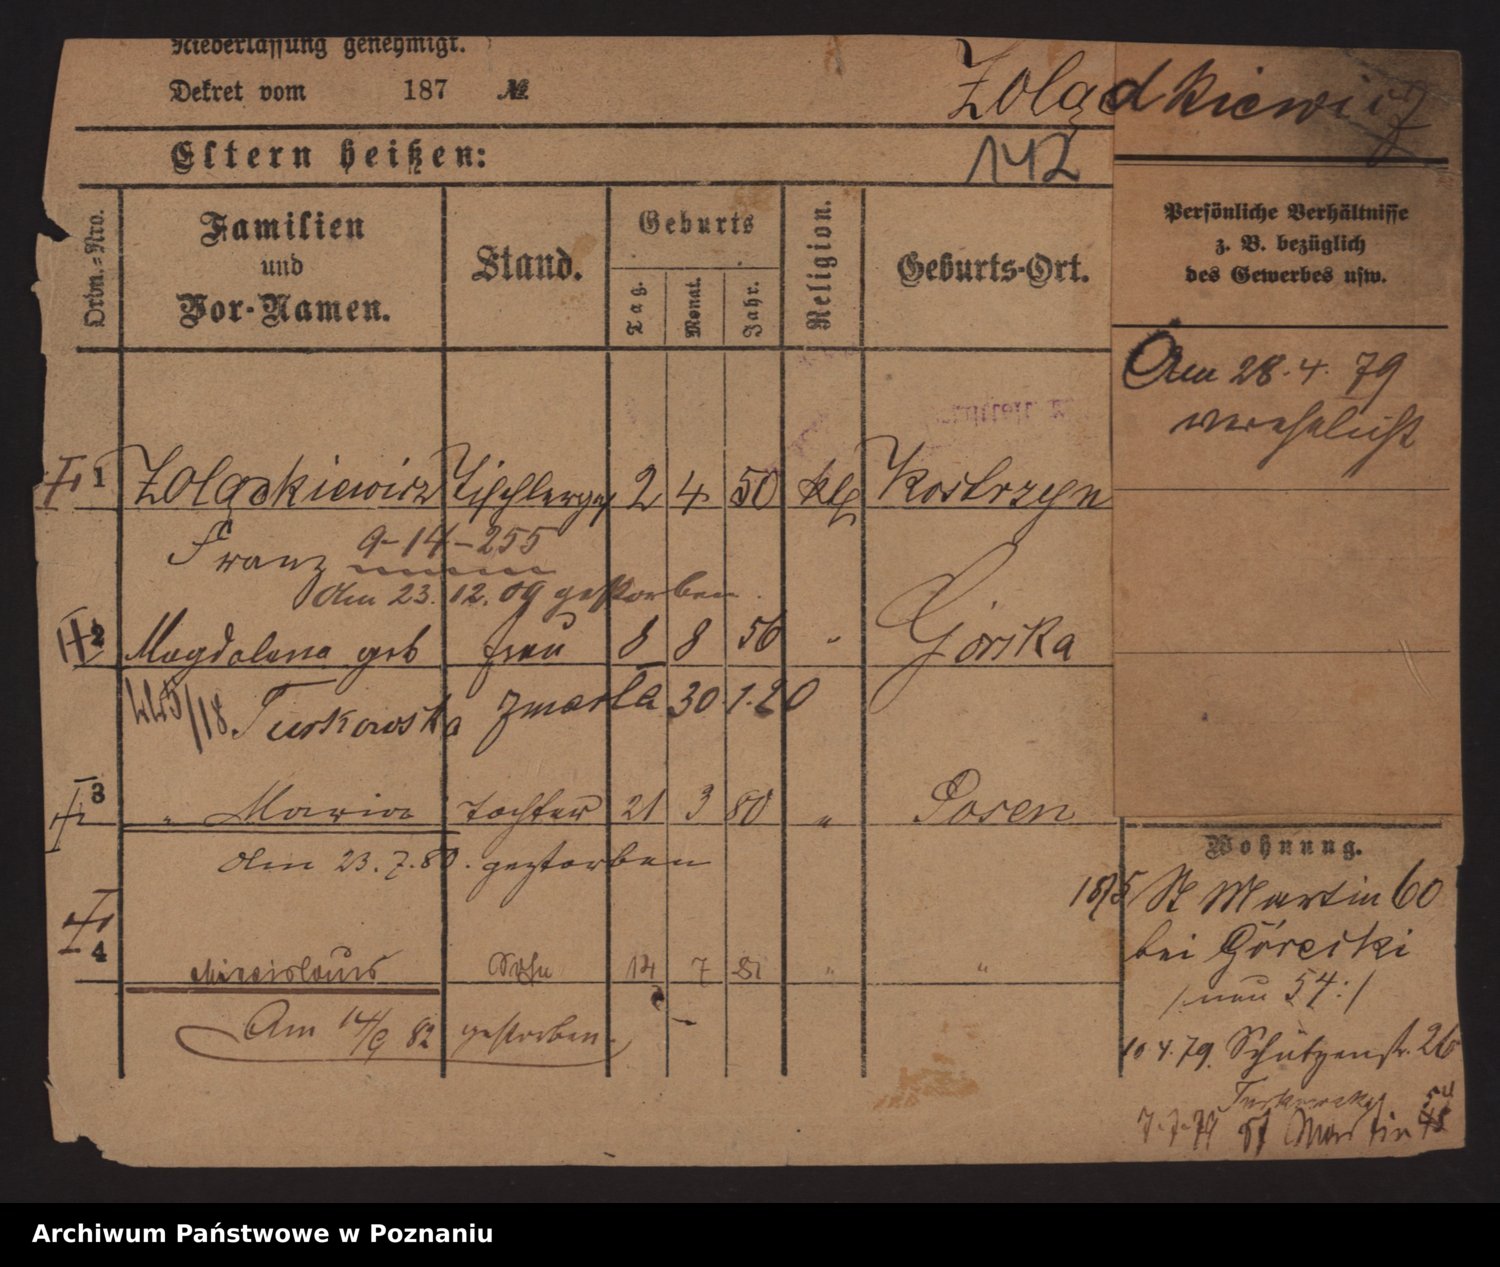 Niederlassung genehmigt.
Dekret vom 187 №
Żolądkiewicz
Eltern heißen:
142
Ordn.-Nro.
Familien
und
Vor-Namen.
Stand.
Geburts
Tag.
Monat.
Jahr.
Religion.
Geburts-Ort.
Persönliche Verhältnisse
z. B. bezüglich
des Gewerbes usw.
Am 28.4.79
verehelicht
1 Żolądkiewicz Tischlerges 2 4 50 kth Kostrzyn
Franz 9-14-255
Am 23.12.09 gestorben.
2 Magdalena geb Frau 8 8 56 " Górska
445/18. Turkowska zmarła 30.1.20
3 " Maria Tochter 21 3 80 " Posen
Am 23.7.80. gestorben
4 Miecislaus Sohn 14 7 81 " "
Am 14/9 82 gestorben.
Wohnung.
1875 St Martin 60
bei Górecki
/neu 54:/
10 4.79. Schützenstr. 26
Turkowska
7.7.79 St Martin 54